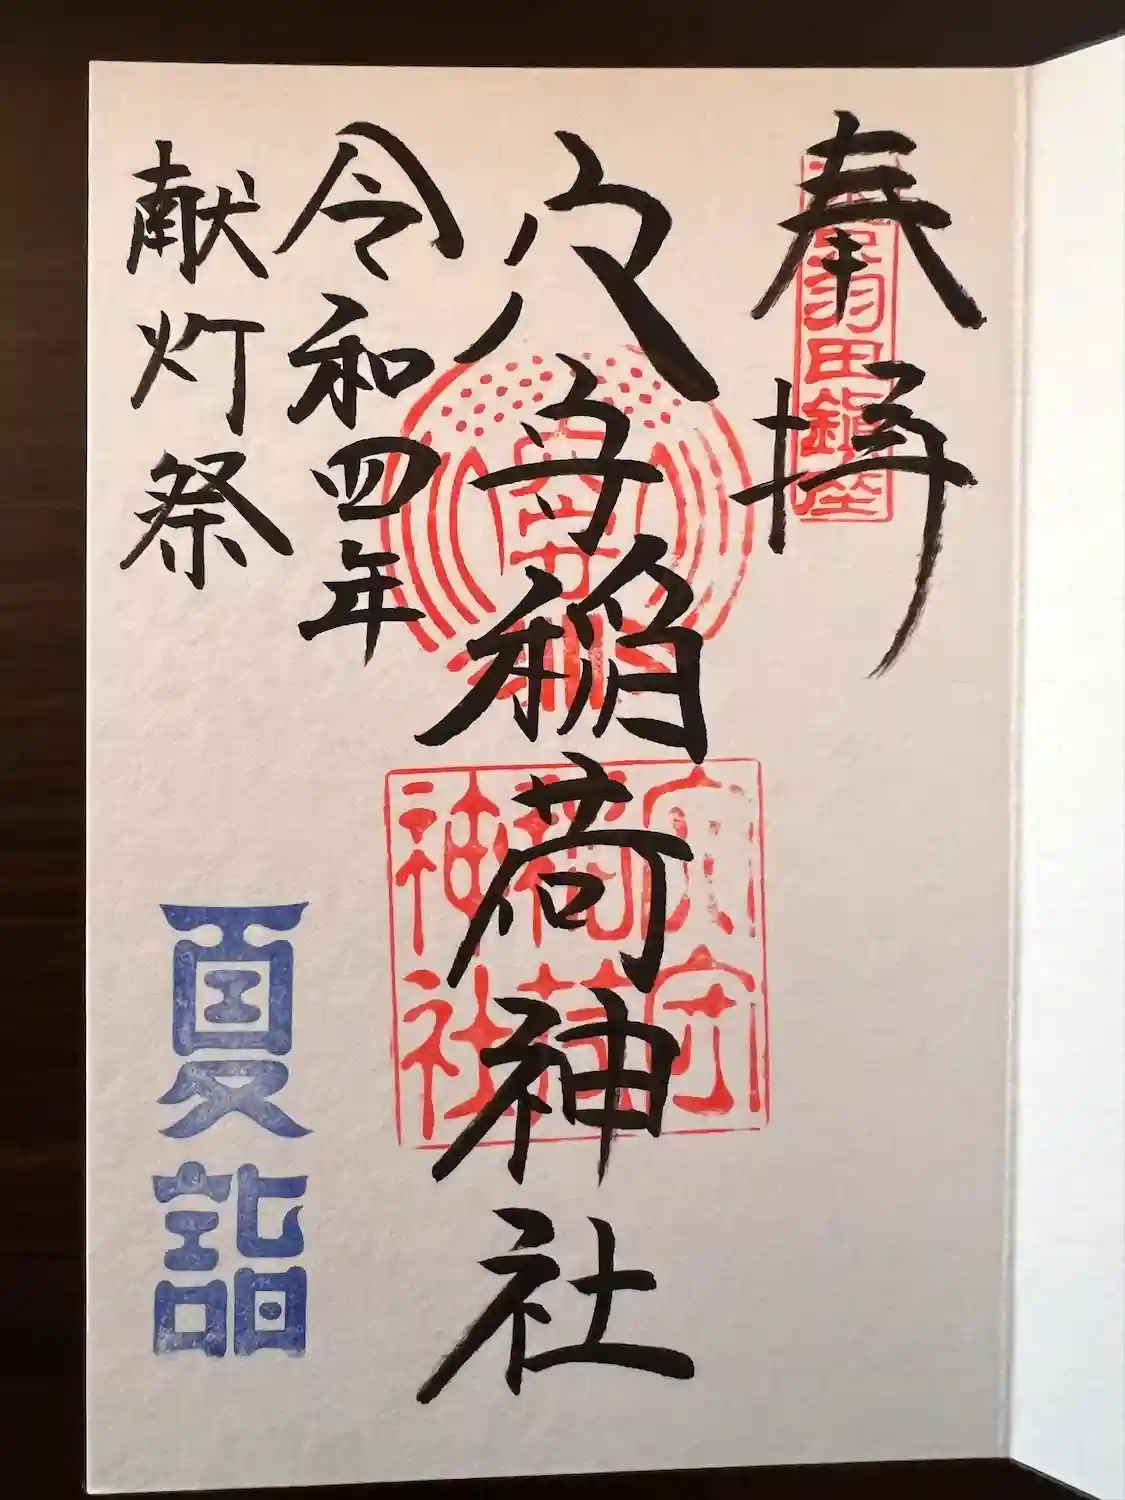 奉拝
羽田鎮座
穴守稲荷神社
穴守
稲荷
神社
令和四年
献灯祭
夏詣